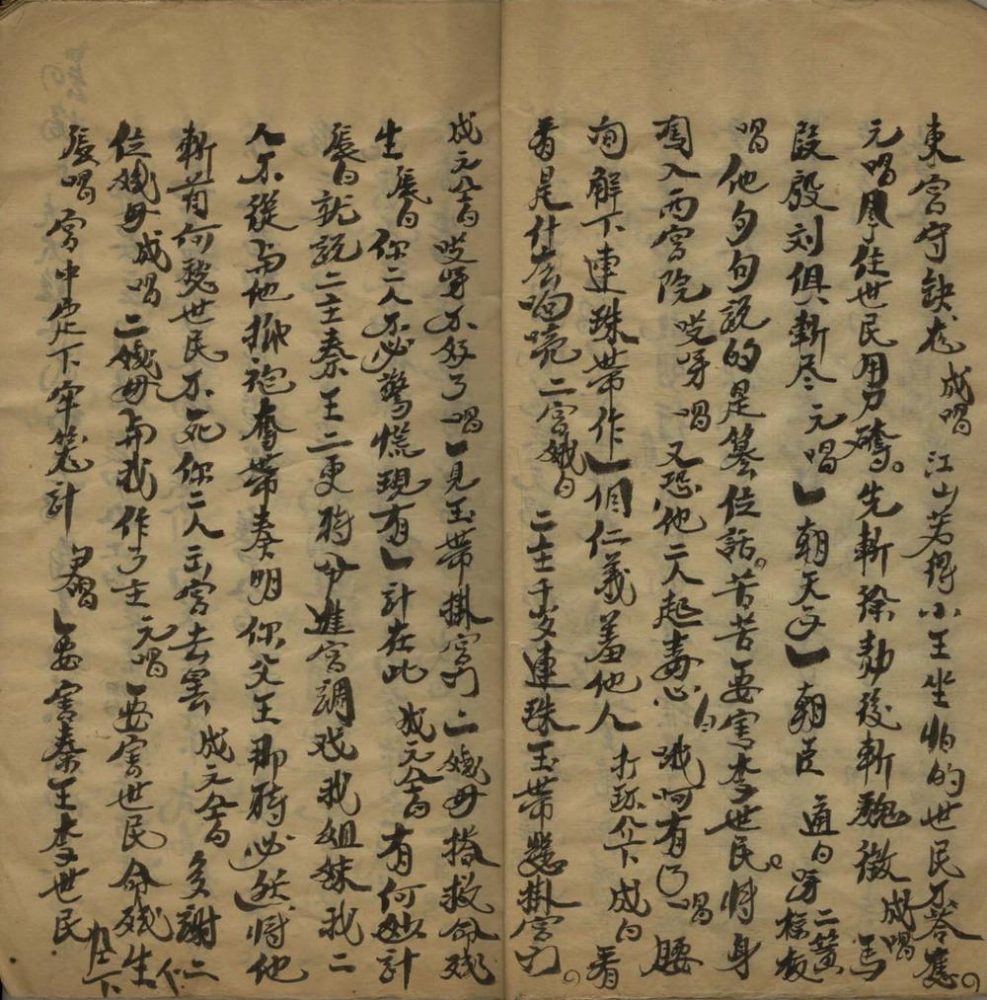 東宮守缺 成唱 江山若得小王坐怕的世民不答應
元唱 住世民用刀磚先斬徐勣後斬魏徵 成唱 馬
段殷刘俱斬尽 元唱 一朝天子一朝臣 白呀 二黃
唱他句句說的是篡位話苦苦要害李世民將身
闯入西宮院 哎呀 唱 又恐他二人起毒心 白 哦呵有了 唱 腰
间解下連珠带作一個仁義羞他人 下 成白 看
看是什么响亮 二宮娥白 二主千岁連珠玉带懸掛宮门
成元仝白 哎呀不好了 唱 一見玉带掛宮门二娘母搭救命残
生 張白 你二人不必驚慌現有一計在此 成元仝白 有何妙計
張白 就說二主秦王二更時分進宮調戏我姐妹我二
人不從与他揪袍奪带奏明你父王那時必然將他
斬首何愁世民不死你二人去罢 成元仝白 多謝二
位娘母 成唱 二娘母与我作了主 元唱 要害世民命残生 仝下
張唱 宮中定下牢笼計 尹唱 要害秦王李世民